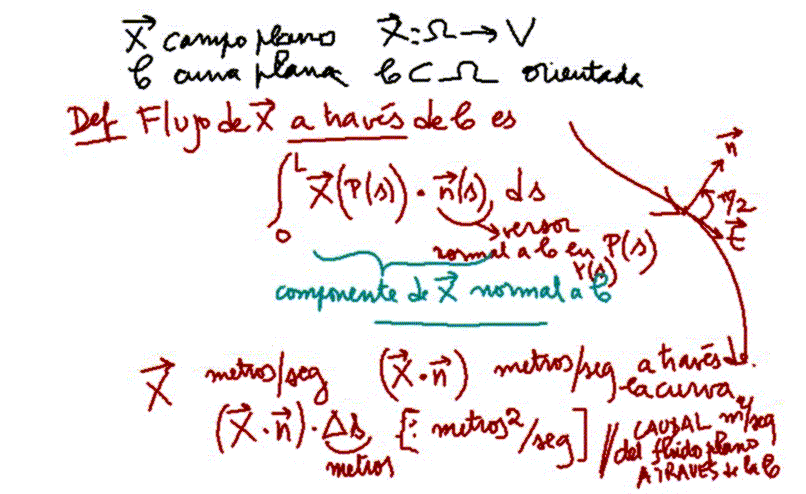 X⃗ campo plano X⃗: Ω → V
C curva plana C ⊂ Ω orientada
Def Flujo de X⃗ a través de C es
∫₀ᴸ X⃗(P(s)) · n⃗(s) ds
versor
normal a C en P(s)
γ(s)
componente de X⃗ normal a C
n⃗
π/2
t⃗
X⃗ metros/seg (X⃗ · n⃗) metros/seg a través de
la curva
(X⃗ · n⃗) · Δs [: metros²/seg] // CAUDAL m²/seg
metros
del fluido plano
A TRAVES de la C